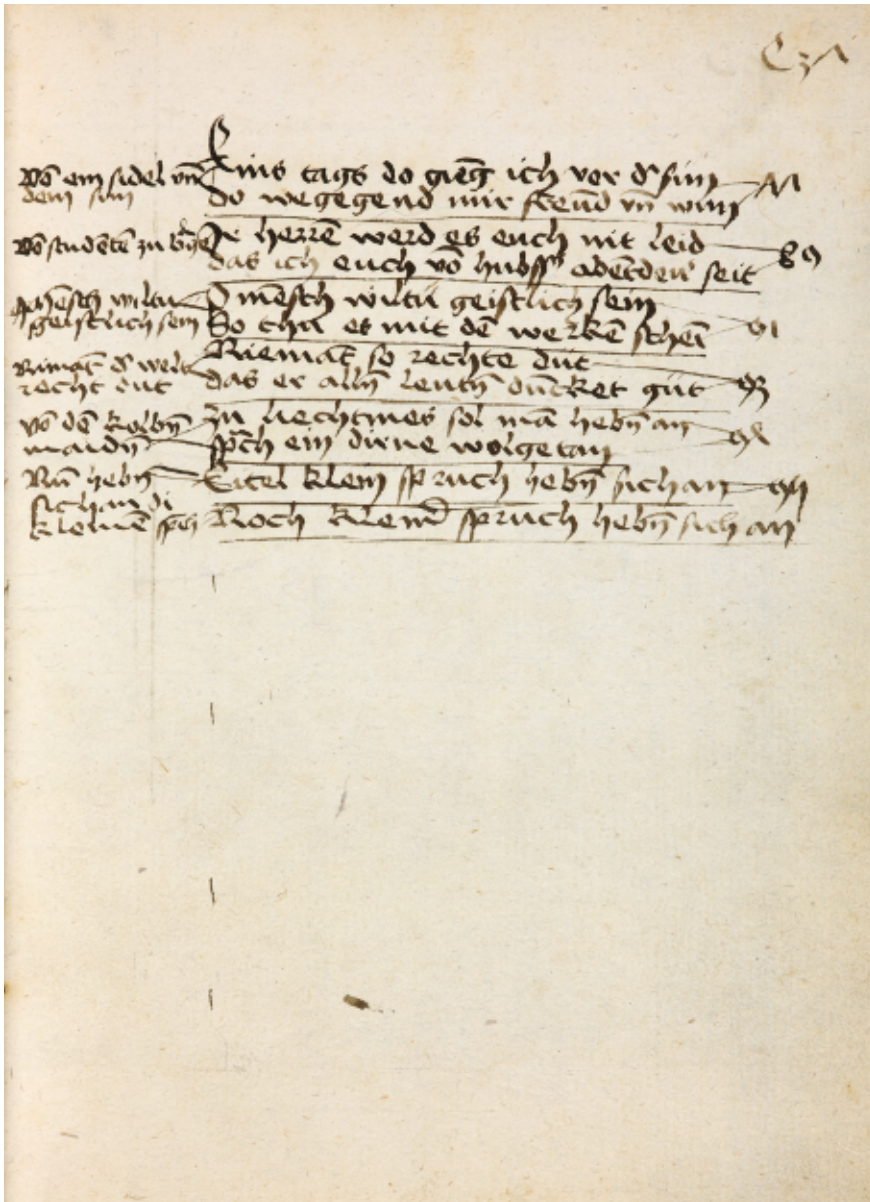 Vō em sidel vn̄
dem sun
Eins tags do gienḡ ich vor d' sun
do wegegend mir freūd vn̄ wun
Vō studētē zu
Ir herrē werd es euch nit leid
das ich euch vō hubsſ' abētewr seit
O mēsch wiltu
geistlich sein
O mēsch wiltu geistlich sein
So thu es mit dē werkē schein
Nimāt d' welt
recht dut
Niemāt so rechte dut
das er alln̄ leutn̄ duncket gut
vō dē kolbn̄
maidn̄
Zu liechtmes sol mā hebn̄ an
sp̄ch ein dirne wolgetan
Nū hebn̄
sich an di
kleinē sp̄ch
Eitel klein spruch hebn̄ sich an
Noch kleinͤ spruch hebn̄ sich an